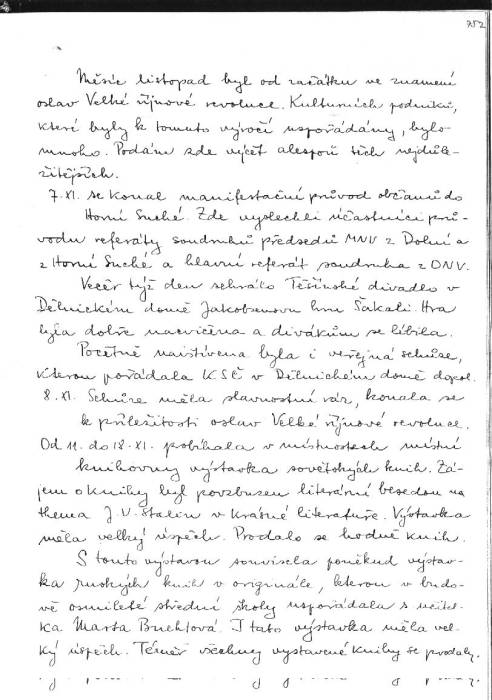 752
Měsíc listopad byl od začátku ve znamení
oslav Velké říjnové revoluce. Kulturních podniků,
které byly k tomuto výročí uspořádány, bylo
mnoho. Podám zde výčet alespoň těch nejdůle-
žitějších.
7. XI. se konal manifestační průvod občanů do
Horní Suché. Zde vyslechli účastníci prů-
vodu referáty soudruhů předsedů MNV z Dolní a
z Horní Suché a hlavní referát soudruha z ONV.
Večer týž den sehrálo Těšínské divadlo v
Dělnickém domě Jakobsonovu hru Šakali. Hra
byla dobře nacvičena a divákům se líbila.
Početně navštívena byla i veřejná schůze,
kterou pořádala KSČ v Dělnickém domě dopol.
8. XI. Schůze měla slavnostní ráz, konala se
k příležitosti oslav Velké říjnové revoluce.
Od 11. do 18. XI. probíhala v místnostech místní
knihovny výstavka sovětských knih. Zá-
jem o knihy byl povzbuzen literární besedou na
thema J. V. Stalin v krásné literatuře. Výstavka
měla velký úspěch. Prodalo se hodně knih.
S touto výstavou souvisela poněkud výstav-
ka ruských knih v originále, kterou v budo-
vě osmileté střední školy uspořádala s. učitel-
ka Marta Buchtová. I tato výstavka měla vel-
ký úspěch. Téměř všechny vystavené knihy se prodaly.